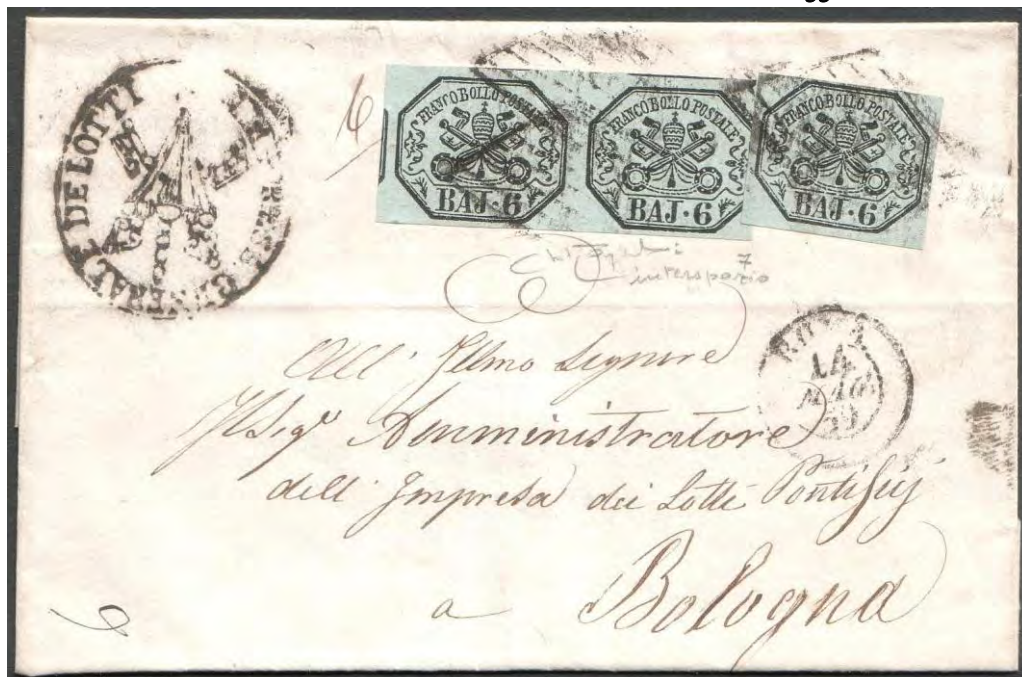 GENERALE DE LOTTI
6
FRANCO BOLLO POSTALE
BAJ·6
FRANCO BOLLO POSTALE
BAJ·6
FRANCO BOLLO POSTALE
BAJ·6
interspazio
ROMA
14
All' Illmo Signore
Il Sigr Amministratore
dell' Impresa dei Lotti Pontificj
a Bologna